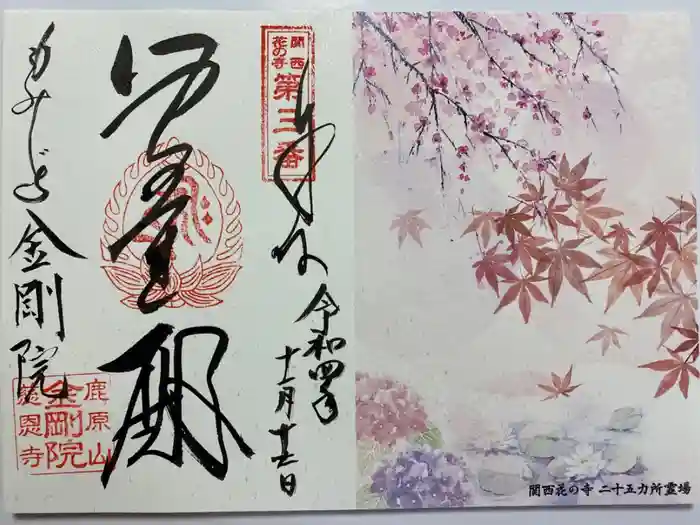 関西
花の寺
第三番
奉拝
令和四年
十一月
もみじ寺 金剛院
鹿原山
金剛院
慈恩寺
関西花の寺 二十五カ所霊場